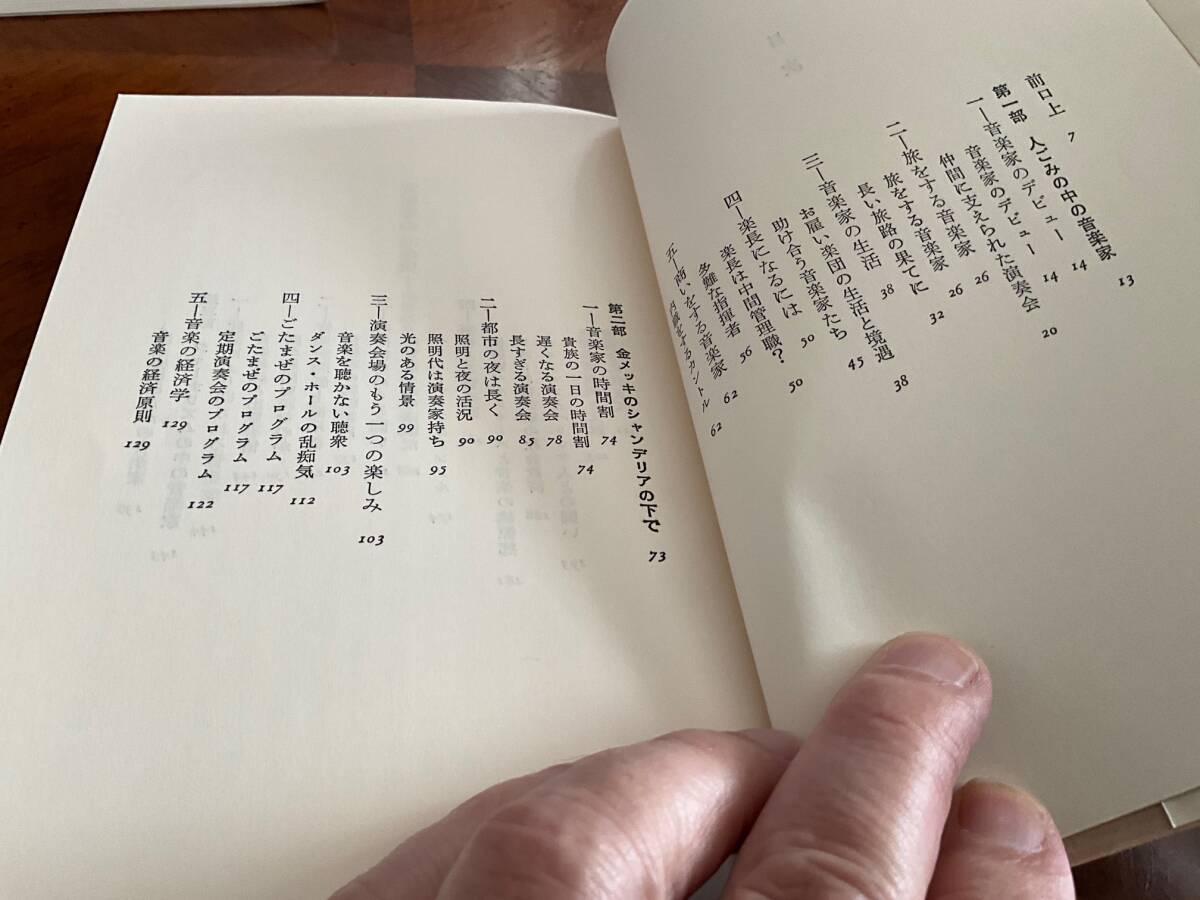 前口上 7
第一部 人ごみの中の音楽家 13
一―音楽家のデビュー 14
音楽家のデビュー 14
仲間に支えられた演奏会 20
二―旅をする音楽家 26
旅をする音楽家 26
長い旅路の果てに 32
三―音楽家の生活 38
お雇い楽団の生活と境遇 38
助け合う音楽家たち 45
四―楽長になるには 50
楽長は中間管理職? 50
多難な指揮者 56
五―商いをする音楽家 62
内職をするカントル 62
第二部 金メッキのシャンデリアの下で 73
一―音楽家の時間割 74
貴族の一日の時間割 74
遅くなる演奏会 78
長すぎる演奏会 85
二―都市の夜は長く 90
照明と夜の活況 90
照明代は演奏家持ち 95
光のある情景 99
三―演奏会場のもう一つの楽しみ 103
音楽を聴かない聴衆 103
ダンス・ホールの乱痴気 112
四―ごたまぜのプログラム 117
ごたまぜのプログラム 117
定期演奏会のプログラム 122
五―音楽の経済学 129
音楽の経済原則 129